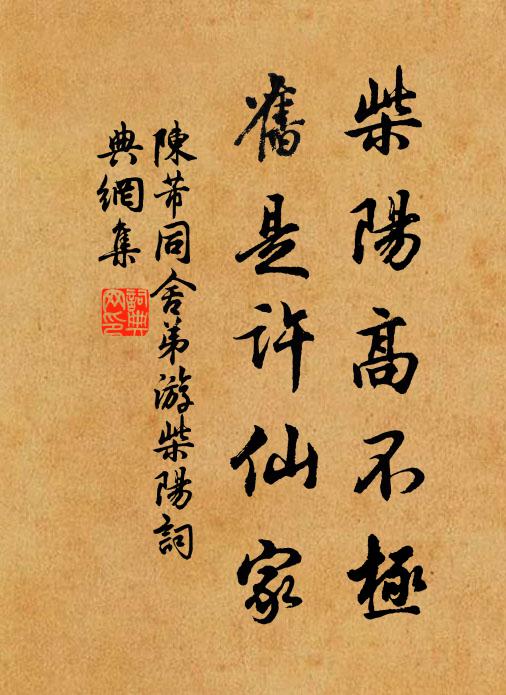 柴陽高不極
舊是許仙家
陳芾同舍弟游柴陽詞
典網集
詞典
网印